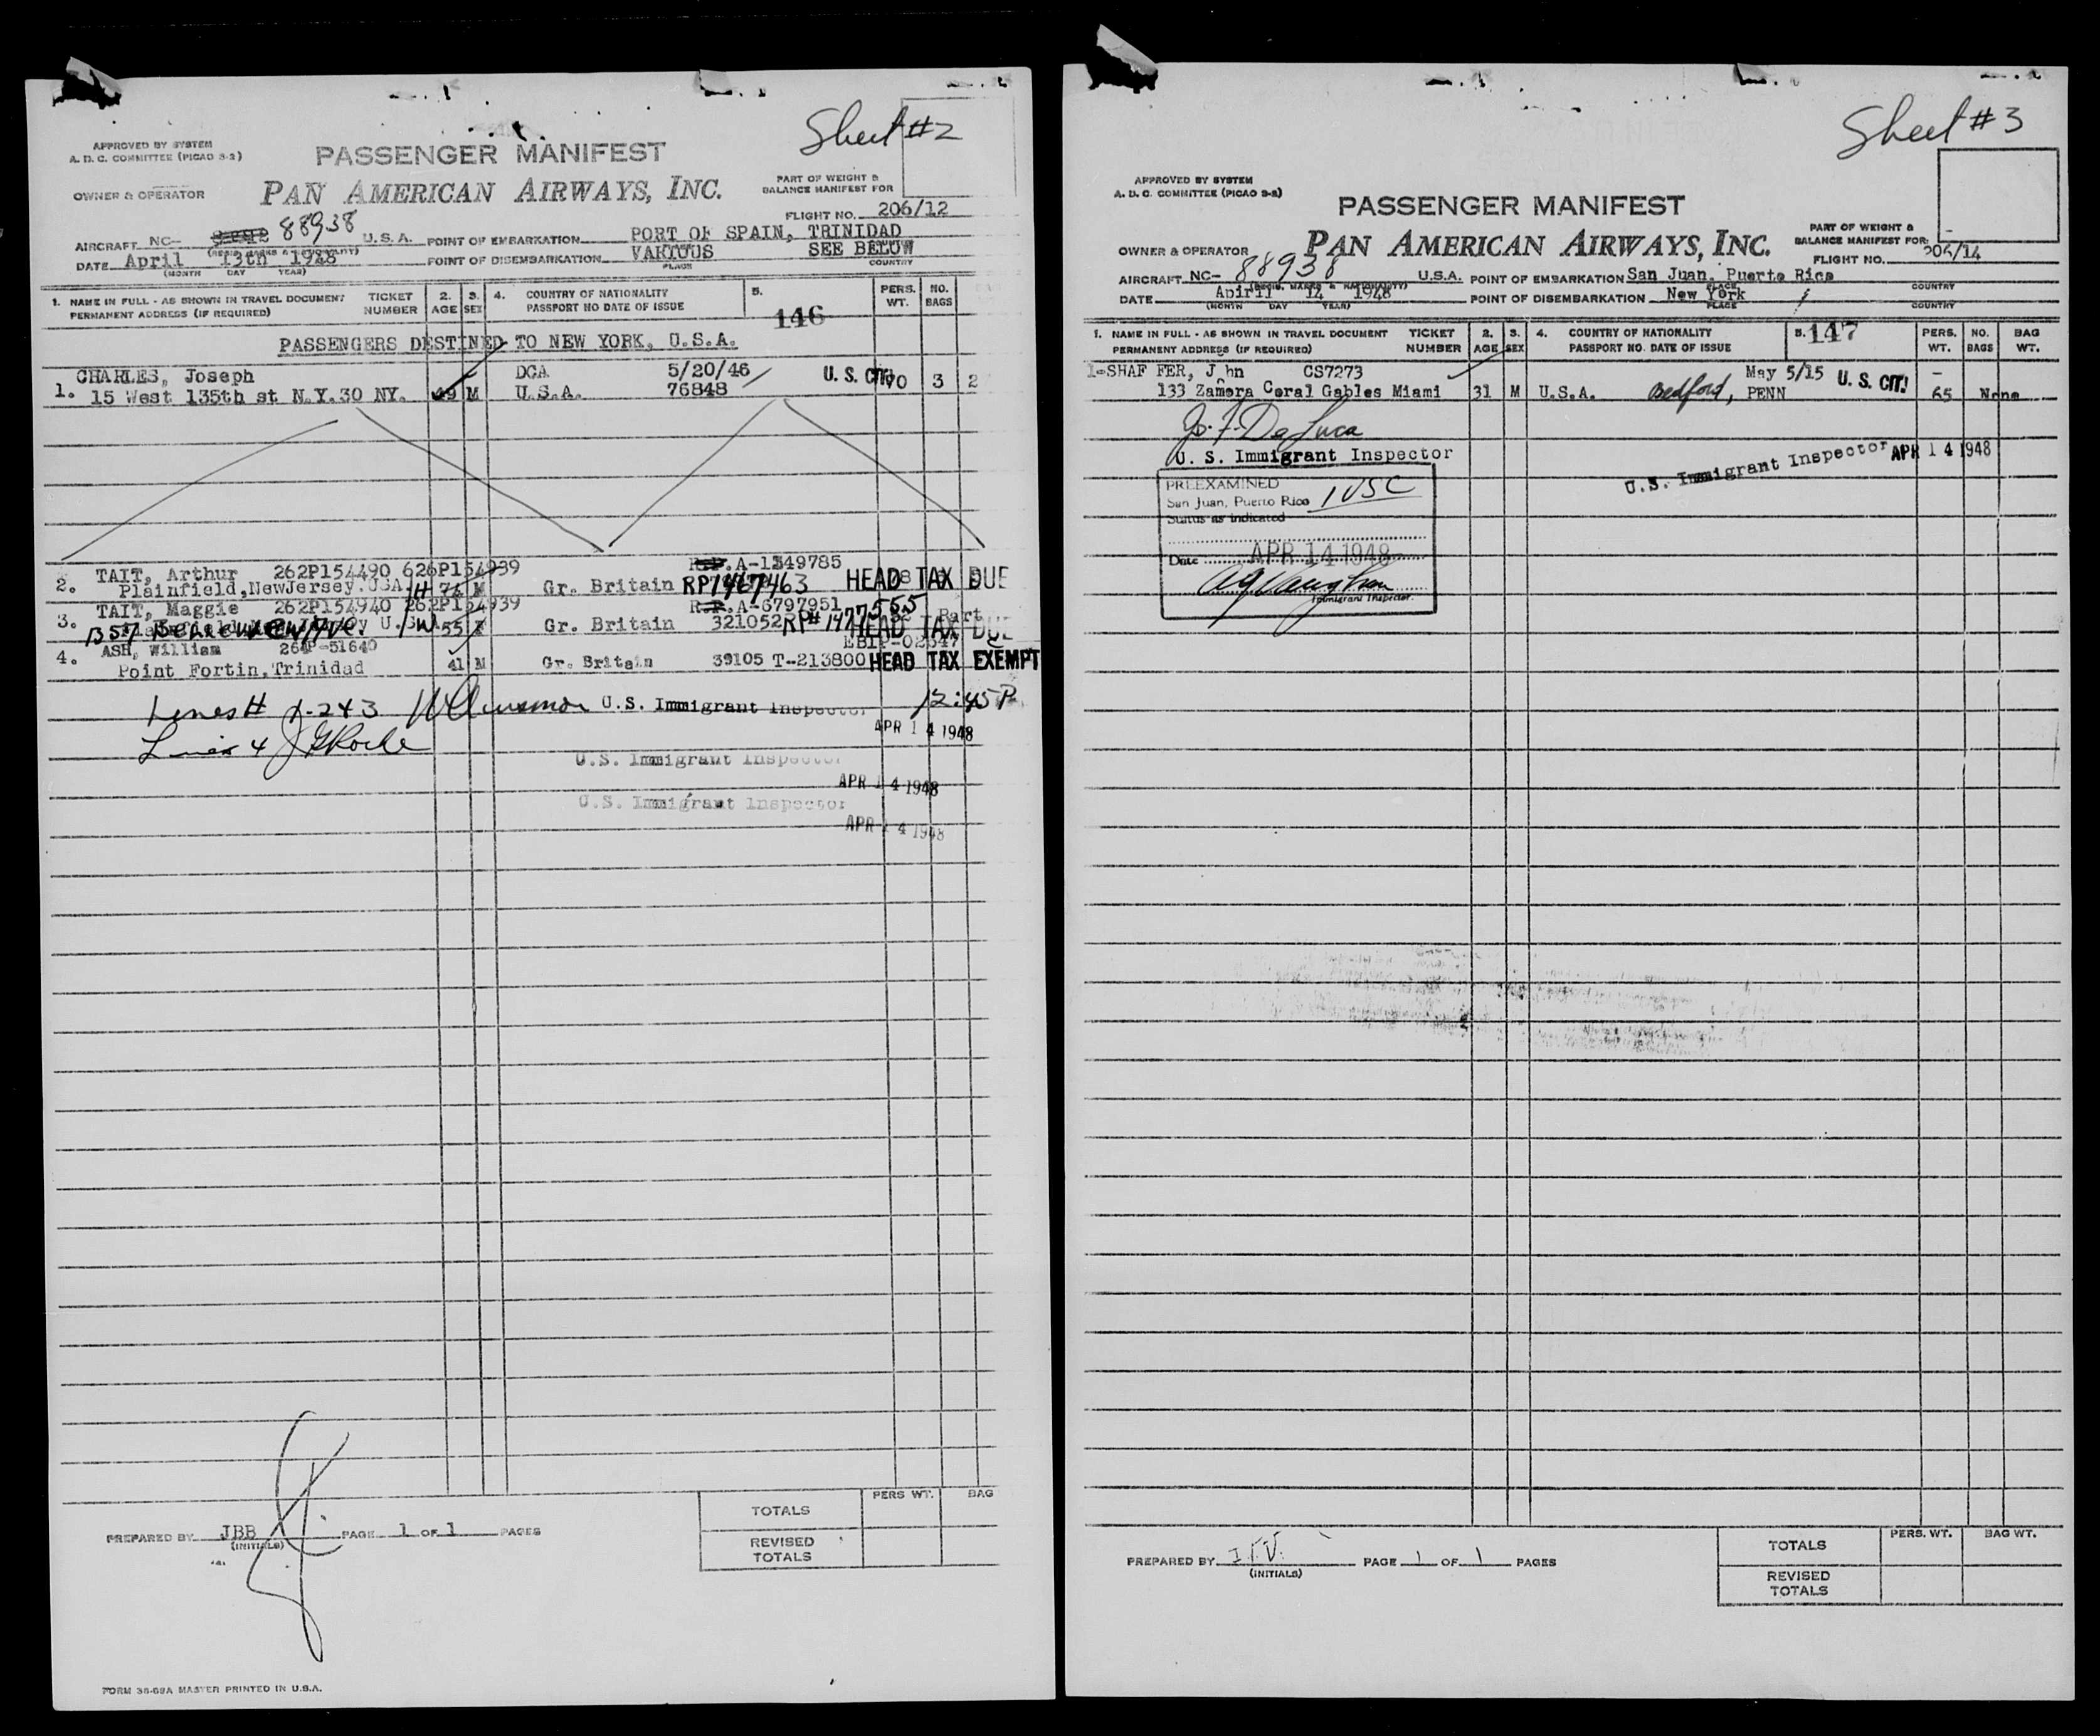 Sheet #2
APPROVED BY SYSTEM
A. D. C. COMMITTEE (PICAO S-2)
PASSENGER MANIFEST
OWNER & OPERATOR PAN AMERICAN AIRWAYS, INC.
PART OF WEIGHT &
BALANCE MANIFEST FOR
FLIGHT NO. 206/12
AIRCRAFT NC- 88938 U.S.A. POINT OF EMBARKATION PORT OF SPAIN, TRINIDAD
DATE April 13th 1948 POINT OF DISEMBARKATION VARIOUS SEE BELOW
(MONTH DAY YEAR) PLACE COUNTRY
1. NAME IN FULL - AS SHOWN IN TRAVEL DOCUMENT TICKET 2. 3. 4. COUNTRY OF NATIONALITY 5. PERS. NO.
PERMANENT ADDRESS (IF REQUIRED) NUMBER AGE SEX PASSPORT NO DATE OF ISSUE 146 WT. BAGS
PASSENGERS DESTINED TO NEW YORK, U.S.A.
CHARLES, Joseph DCA 5/20/46 U. S. CIT!
1. 15 West 135th st N.Y.30 NY. 49 M U.S.A. 76848 70 3 2
TAIT, Arthur 262P154490 626P154939 A-1349785
2. Plainfield,NewJersey.USA H 74 M Gr. Britain RP1467463 HEAD TAX DUE
TAIT, Maggie 262P154940 262P154939 A-6797951
3. 1357 Ave. W 55 F Gr. Britain 321052 RP# 1477555 HEAD TAX DUE Part
ASH, William 264P-51640
4. Point Fortin,Trinidad 41 M Gr. Britain 39105 T-213800 HEAD TAX EXEMPT
Lines # 1-2&3 U.S. Immigrant Inspector 12:45 P.
APR 14 1948
Lines 4
U.S. Immigrant Inspector
APR 14 1948
U.S. Immigrant Inspector
APR 14 1948
TOTALS PERS WT. BAG
REVISED
TOTALS
PREPARED BY JBB PAGE 1 OF 1 PAGES
(INITIALS)
FORM 36-69A MASTER PRINTED IN U.S.A.
Sheet #3
APPROVED BY SYSTEM
A. D. C. COMMITTEE (PICAO S-2)
PASSENGER MANIFEST
OWNER & OPERATOR PAN AMERICAN AIRWAYS, INC.
PART OF WEIGHT &
BALANCE MANIFEST FOR:
FLIGHT NO. 206/14
AIRCRAFT NC- 88938 U.S.A. POINT OF EMBARKATION San Juan, Puerto Rico
PLACE COUNTRY
DATE Apiril 14 1948 POINT OF DISEMBARKATION New York
(MONTH DAY YEAR) PLACE COUNTRY
1. NAME IN FULL - AS SHOWN IN TRAVEL DOCUMENT TICKET 2. 3. 4. COUNTRY OF NATIONALITY 5. 147 PERS. NO. BAG
PERMANENT ADDRESS (IF REQUIRED) NUMBER AGE SEX PASSPORT NO. DATE OF ISSUE WT. BAGS WT.
1-SHAF FER, J hn CS7273 May 5/15 U. S. CIT! -
133 Zamora Coral Gables Miami 31 M U.S.A. Bedford, PENN 65 None
Jo. F. DeLuca
U. S. Immigrant Inspector
U.S. Immigrant Inspector APR 14 1948
PREEXAMINED
San Juan, Puerto Rico 1 USC
Status as indicated
Date APR 14 1948
Immigrant Inspector
TOTALS PERS. WT. BAG WT.
REVISED
TOTALS
PREPARED BY PAGE 1 OF 1 PAGES
(INITIALS)